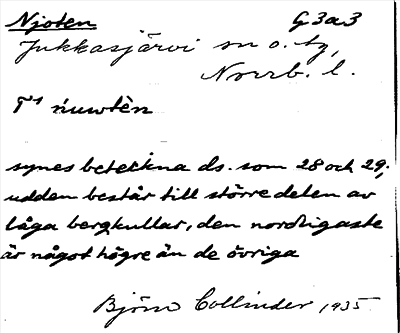 Njoten G3a3
Jukkasjärvi sn o. tg,
Norrb. l.
T¹ ńuwtèn
synes beteckna ds. som 28 och 29;
udden består till större delen av
låga bergkullar, den nordligaste
är något högre än de övriga
Björn Collinder 1935